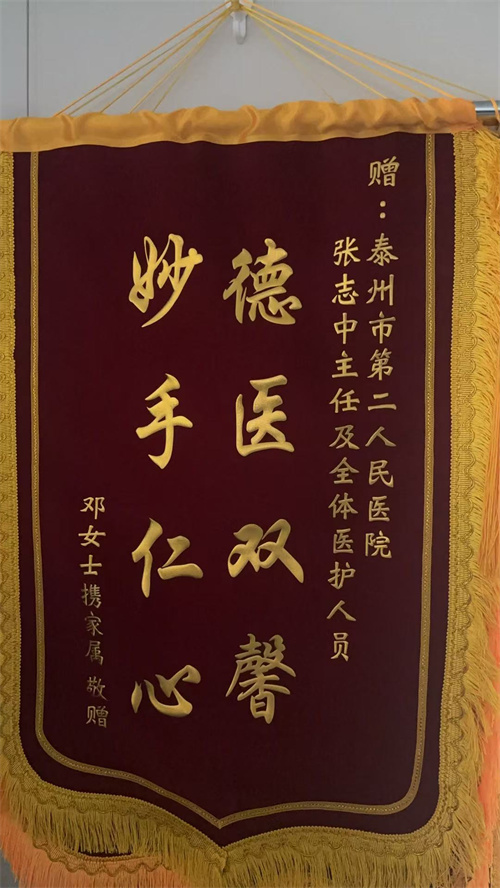 赠：泰州市第二人民医院
张志中主任及全体医护人员
德医双馨
妙手仁心
邓女士携家属 敬赠